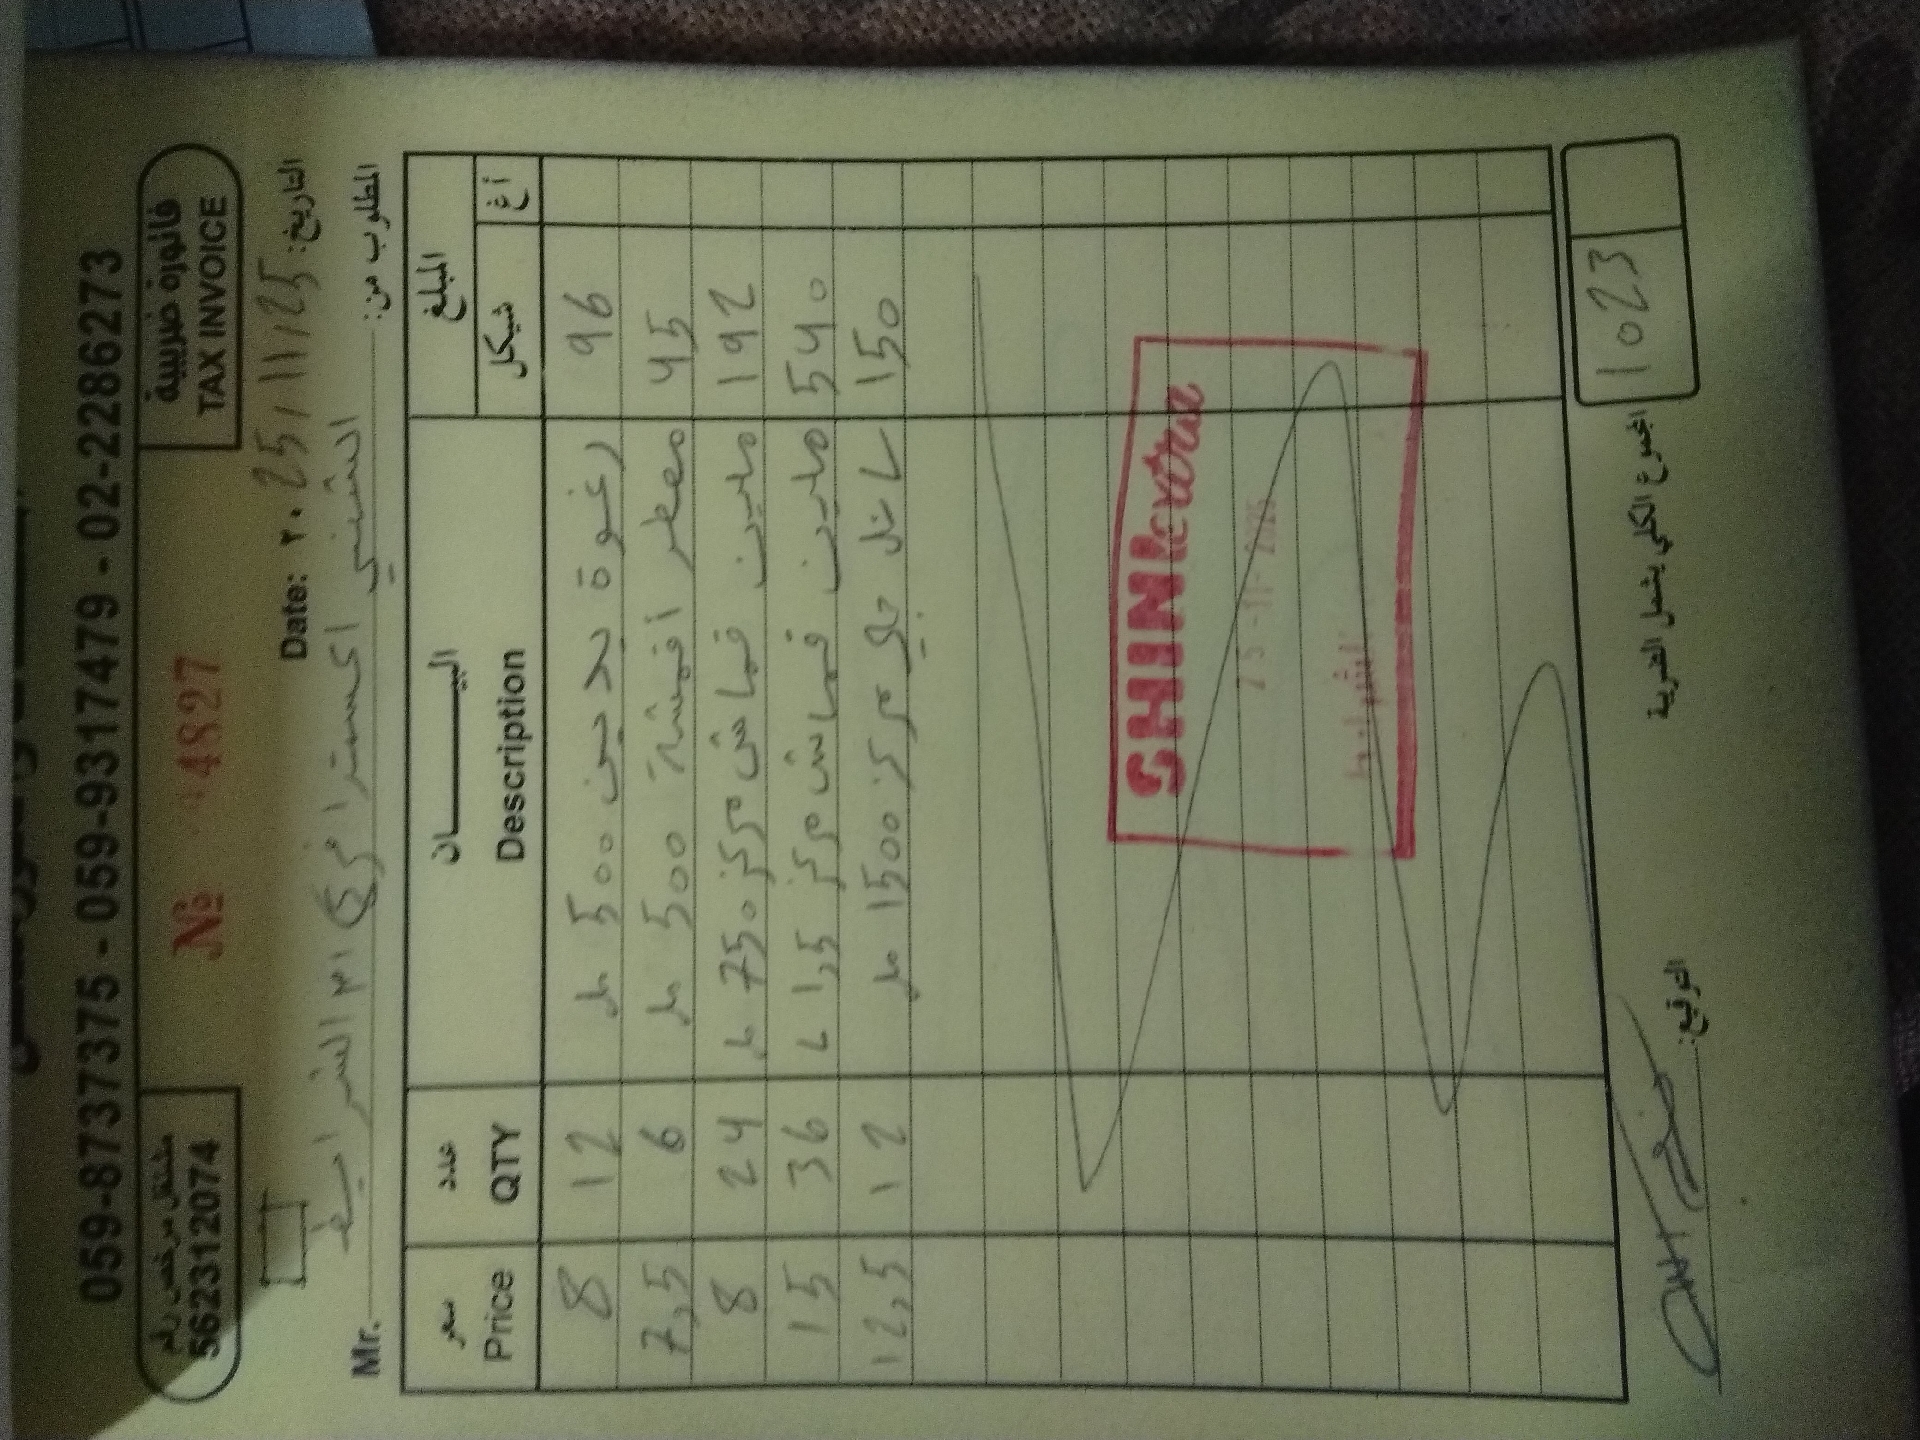 059-8737375 - 059-9317479 - 02-2286273
مشتغل مرخص رقم
562312074
№ 4827
فاتورة ضريبية
TAX INVOICE
Date: ٢٠ 25/11/25 التاريخ:
الشني اكسترا فرع ام الشرايط
Mr. المطلوب من:
سعر Price عدد QTY البيـــــــان Description المبلغ شيكل أغ
8 12 رغوة يدين 500 مل 96
7,5 6 معطر أقمشة 500 مل 45
8 24 ملين قماش مركز 750 مل 192
15 36 ملين قماش مركز 1,5 ل 540
12,5 12 سائل جلي مركز 1500 مل 150
SHINI extra
25-11-2025
المجموع الكلي يشمل الضريبة 1023
التوقيع: